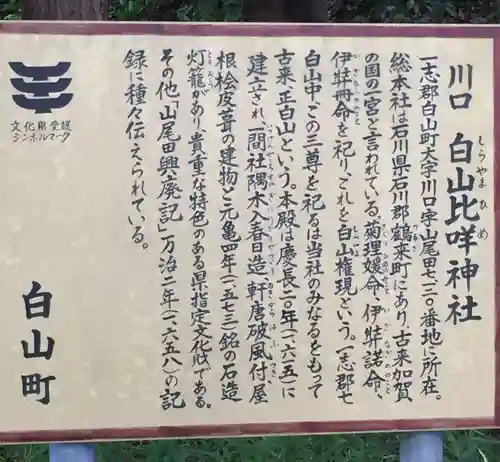 川口 白山比咩神社
しらやまひめ
一志郡白山町大字川口字山尾田七二〇番地に所在。
総本社は石川県石川郡鶴来町にあり、古来加賀
の国の一宮と言われている。菊理媛命、伊弉諾命、
伊弉冊命を祀り、これを白山権現という。一志郡七
白山中、この三尊を祀るは当社のみなるをもって
古来、正白山という。本殿は慶長二〇年(一六一五)に
建立され、一間社隅木入春日造、軒唐破風付、屋
根桧皮葺の建物と元亀四年(一五七三)銘の石造
灯籠があり、貴重な特色のある県指定文化財である。
その他「山尾田興廃記」万治二年(一六五八)の記
録に種々伝えられている。
文化財愛護
シンボルマーク
白山町